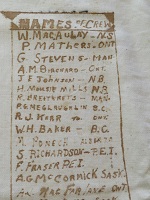 NAMES OF CREW
W. MACAULAY - N.S
P. MATHERS - ONT
G STEVENS - MAN
A.M BIRCHARD - ONT.
J F JOHNSEN - N.B.
H MOUSIE MILLS N.B.
R BREITKREUTZ - MAN.
R E MCGLAUGHLIN B.C.
R.J KERR ONT
W.H. BAKER - B.C.
S RICHARDSON - P.E.I.
F FRASER P.E.I.
A.G MCCORMICK SASK.
MACFARLANE ONT.